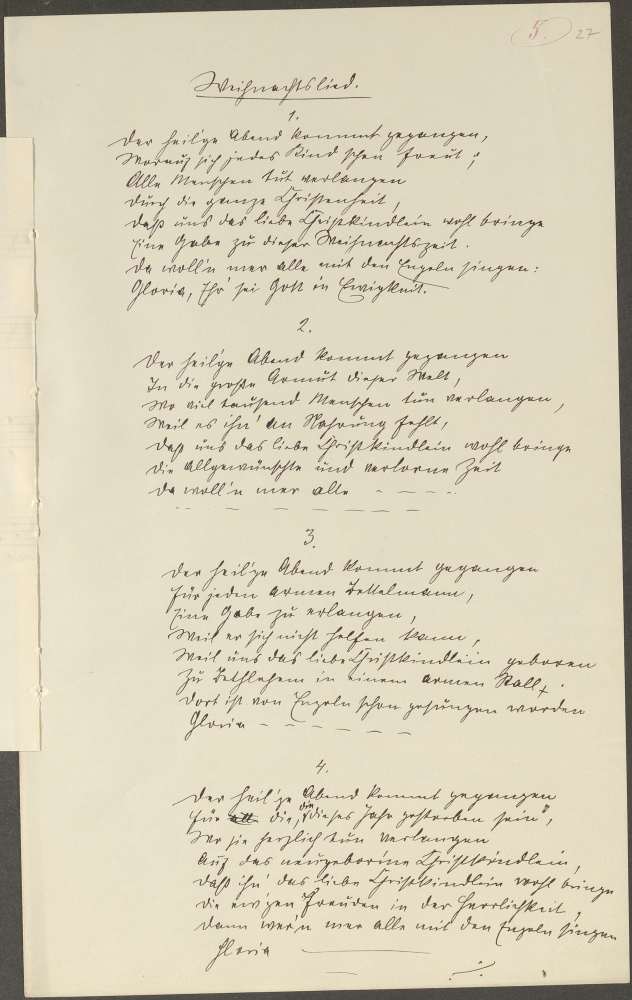 5. 27
Weihnachtslied.
1.
Der heil'ge Abend kommt gegangen,
Worauf sich jedes Kind schon freut;
Alle Menschen tut verlangen
Durch die ganze Christenheit,
Daß uns das liebe Christkindlein wohl bringe
Eine Gabe zu dieser Weihnachtszeit.
Da woll'n mer alle mit den Engeln singen:
Gloria, Ehr' sei Gott in Ewigkeit.
2.
Der heil'ge Abend kommt gegangen
In die große Armut dieser Welt,
Wo viel tausend Menschen tun verlangen,
Weil es ihn' an Nahrung fehlt,
Daß uns das liebe Christkindlein wohl bringe
Die allgewünschte und verlorne Zeit
Da woll'n mer alle - - - -
- - - - - - -
3.
Der heil'ge Abend kommt gegangen
Für jeden armen Bettelmann,
Eine Gabe zu erlangen,
Weil er sich nicht helfen kann,
Weil uns das liebe Christkindlein geboren
Zu Bethlehem in einem armen Stall,
Dort ist von Engeln schon gesungen worden
Gloria - - - - - -
4.
Der heil'ge Abend kommt gegangen
Für alle die, die dieses Jahr gestorben sein",
Wo sie herzlich tun verlangen
Auf das neugeborine Christkindlein,
Daß ihn' das liebe Christkindlein wohl bringe
Die ew'gen Freuden in der Herrlichkeit,
Dann wer'n mer alle mit den Engeln singen
Gloria